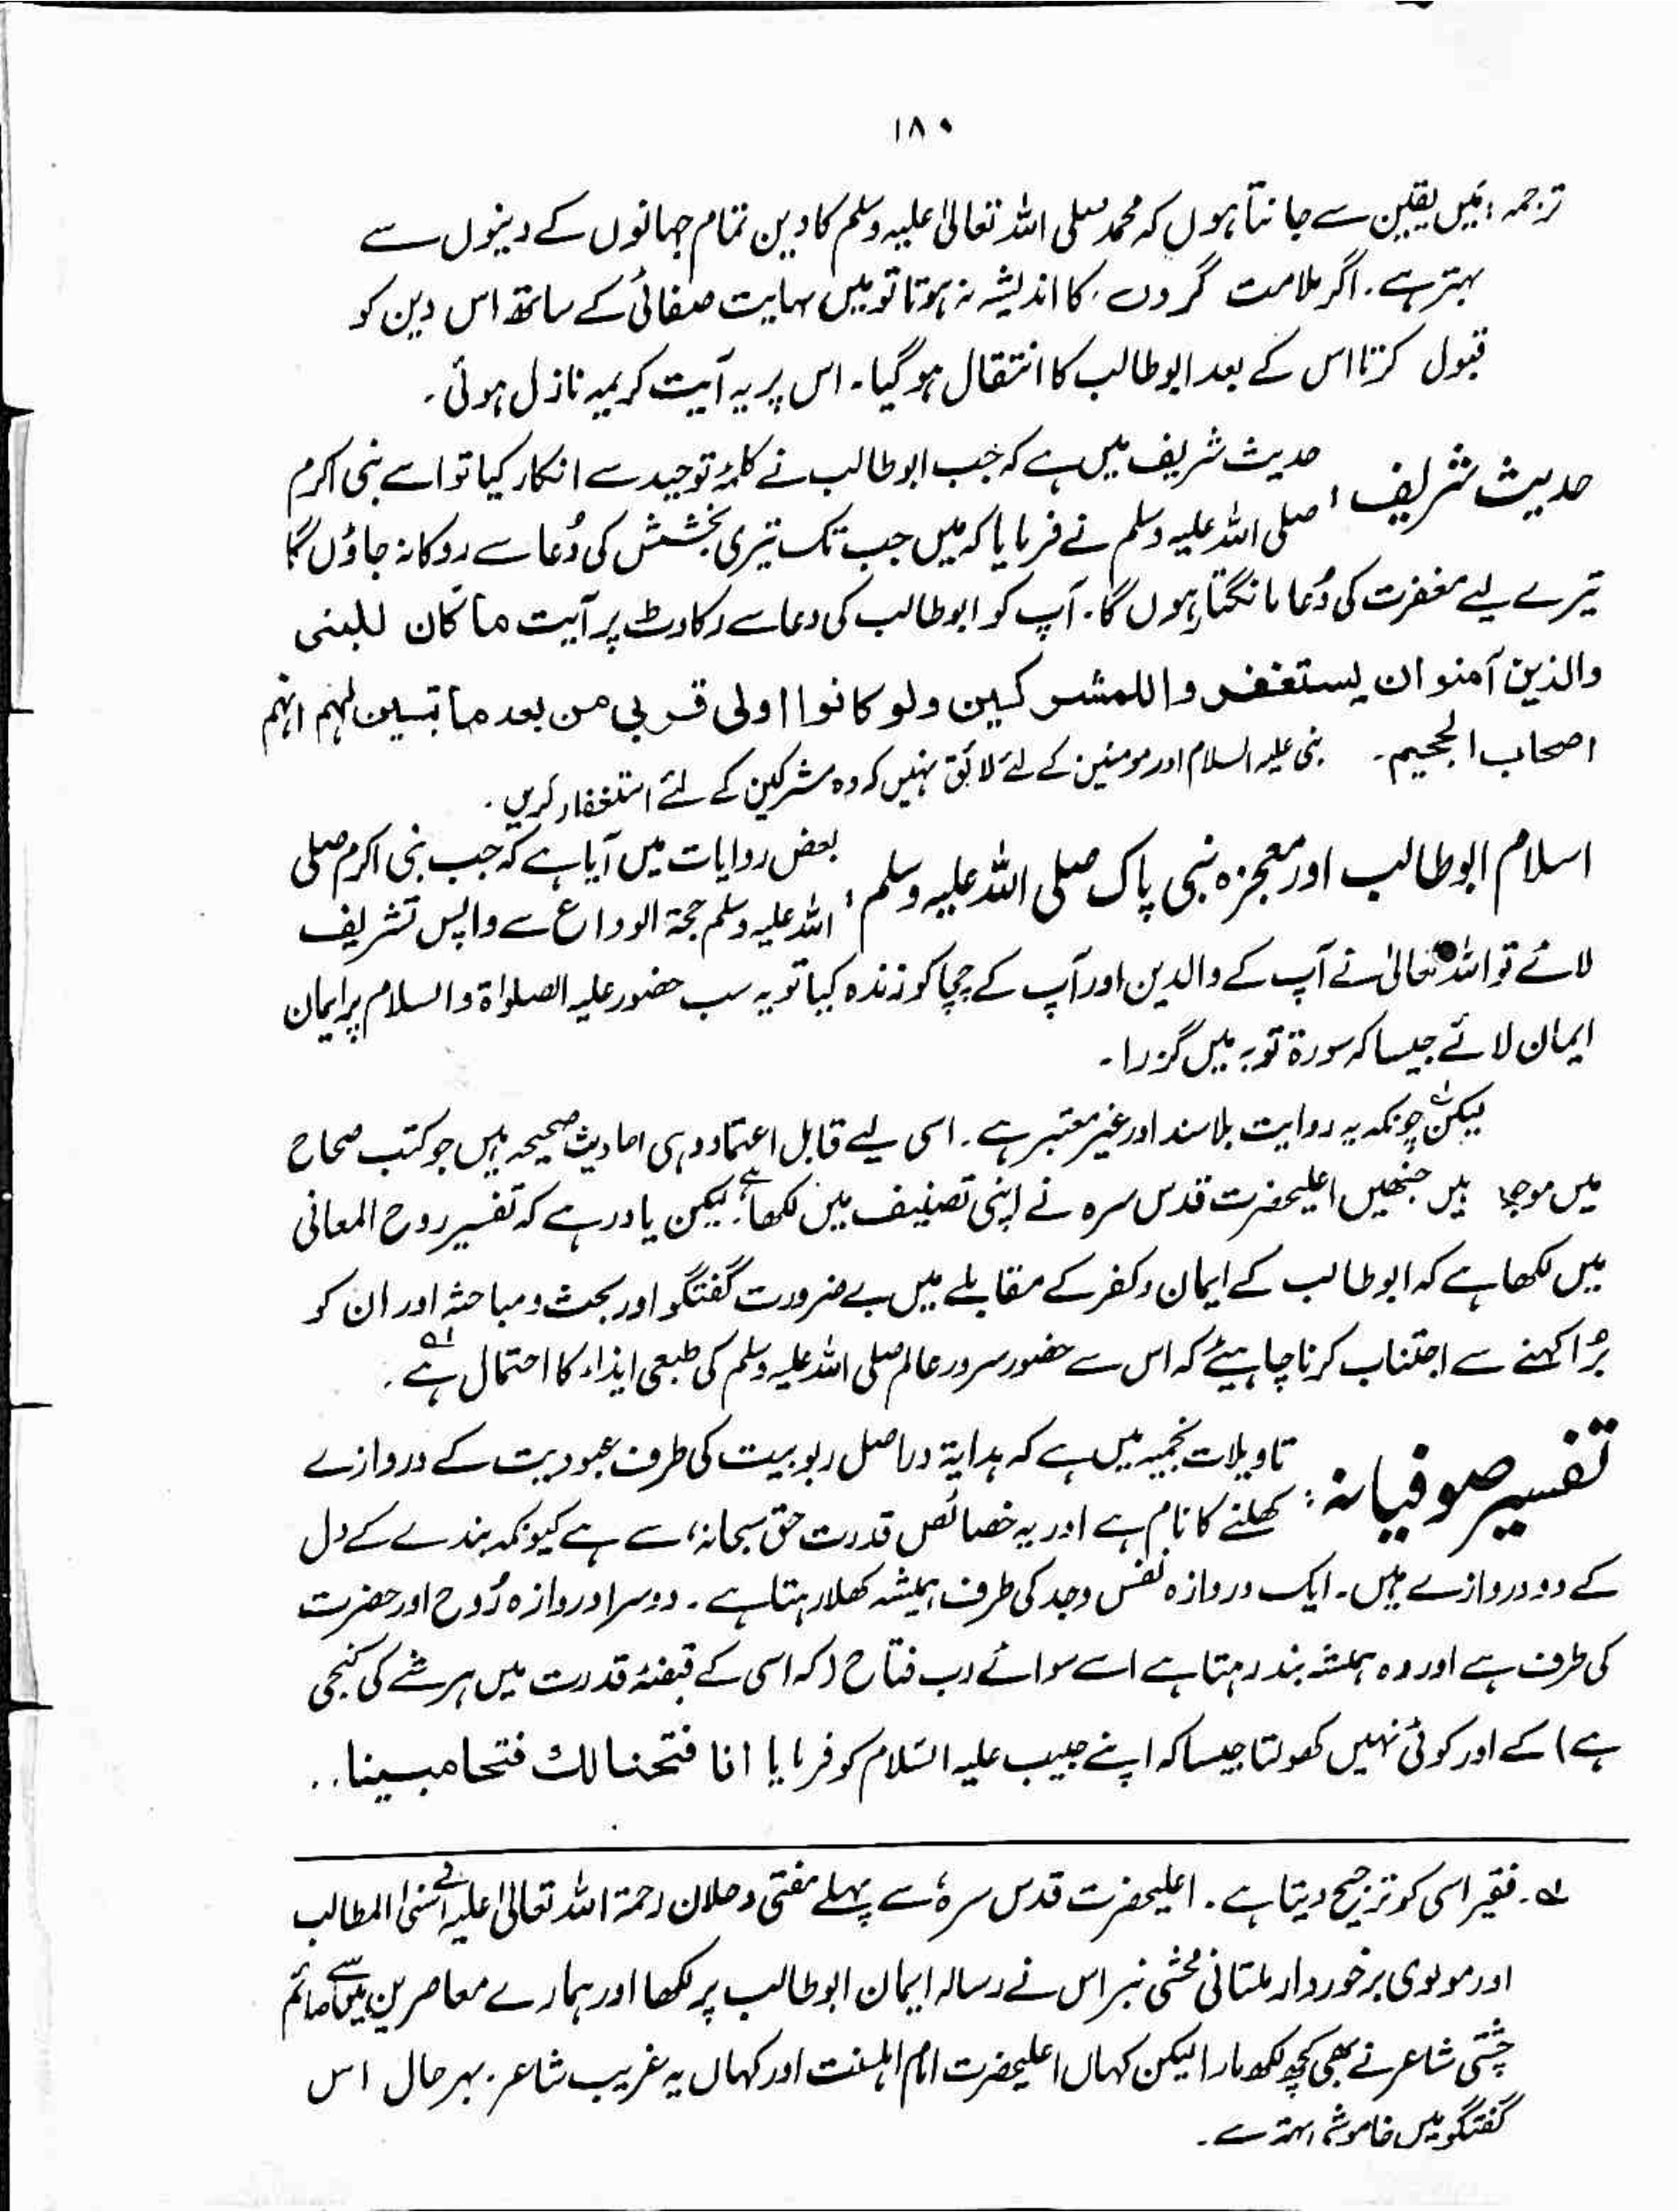 ۱۸۰
ترجمہ: میں یقین سے جانتا ہوں کہ محمد صلی اللہ تعالیٰ علیہ وسلم کا دین تمام جہانوں کے دینوں سے
بہتر ہے۔ اگر ملامت گروں کا اندیشہ نہ ہوتا تو میں نہایت صفائی کے ساتھ اس دین کو
قبول کرتا اس کے بعد ابو طالب کا انتقال ہو گیا۔ اس پر یہ آیت کریمہ نازل ہوئی۔
حدیث شریف: حدیث شریف میں ہے کہ جب ابو طالب نے کلمۂ توحید سے انکار کیا تو اسے نبی اکرم
صلی اللہ علیہ وسلم نے فرمایا کہ میں جب تک تیری بخشش کی دُعا سے روکا نہ جاؤں گا
تیرے لیے مغفرت کی دُعا مانگتا رہوں گا۔ آپ کو ابو طالب کی دعا سے رکاوٹ پر آیت ما کان للنبی
والذین آمنو ان یستغفر وا للمشرکین ولو کانوا اولی قربی من بعد ما تبین لہم انہم
اصحاب الجحیم۔ نبی علیہ السلام اور مومنین کے لئے لائق نہیں کہ وہ مشرکین کے لئے استغفار کریں۔
اسلام ابو طالب اور معجزہ نبی پاک صلی اللہ علیہ وسلم: بعض روایات میں آیا ہے کہ جب نبی اکرم صلی
اللہ علیہ وسلم حجۃ الوداع سے واپس تشریف
لائے تو اللہ تعالیٰ نے آپ کے والدین اور آپ کے چچا کو زندہ کیا تو یہ سب حضور علیہ الصلواۃ والسلام پر ایمان
ایمان لائے جیسا کہ سورۃ توبہ میں گزرا۔
لیکن چونکہ یہ روایت بلا سند اور غیر معتبر ہے۔ اسی لیے قابل اعتماد وہی احادیث صحیحہ ہیں جو کتب صحاح
میں موجود ہیں جنھیں اعلیحضرت قدس سرہ نے اپنی تصنیف میں لکھا ہے، لیکن یاد رہے کہ تفسیر روح المعانی
میں لکھا ہے کہ ابو طالب کے ایمان و کفر کے مقابلے میں بے ضرورت گفتگو اور بحث و مباحثہ اور ان کو
بُرا کہنے سے اجتناب کرنا چاہیئے کہ اس سے حضور سرور عالم صلی اللہ علیہ وسلم کی طبعی ایذاء کا احتمال ہے لہ۔
تفسیر صوفیانہ: تاویلات نجمیہ میں ہے کہ ہدایۃ دراصل ربوبیت کی طرف عبودیت کے دروازے
کھلنے کا نام ہے اور یہ خصائص قدرت حق سبحانہ، سے ہے کیونکہ بندے کے دل
کے دو دروازے ہیں۔ ایک دروازہ نفس وجد کی طرف ہمیشہ کھلا رہتا ہے۔ دوسرا دروازہ رُوح اور حضرت
کی طرف ہے اور وہ ہمیشہ بند رہتا ہے اسے سوائے رب فتاح (کہ اسی کے قبضۂ قدرت میں ہر شے کی کنجی
ہے) کے اور کوئی نہیں کھولتا جیسا کہ اپنے حبیب علیہ السّلام کو فرمایا انا فتحنا لک فتحا مبینا..
لہ۔ فقیر اسی کو ترجیح دیتا ہے۔ اعلیحضرت قدس سرہٗ سے پہلے مفتی دحلان رحمۃ اللہ تعالیٰ علیہ نے اسنی المطالب
اور مولوی برخوردار ملتانی محشی نبراس نے رسالہ ایمان ابو طالب پر لکھا اور ہمارے معاصرین میں سے صائم
چشتی شاعر نے بھی کچھ لکھ مارا لیکن کہاں اعلیحضرت امام اہلسنت اور کہاں یہ غریب شاعر۔ بہر حال اس
گفتگو میں خاموشی بہتر ہے۔